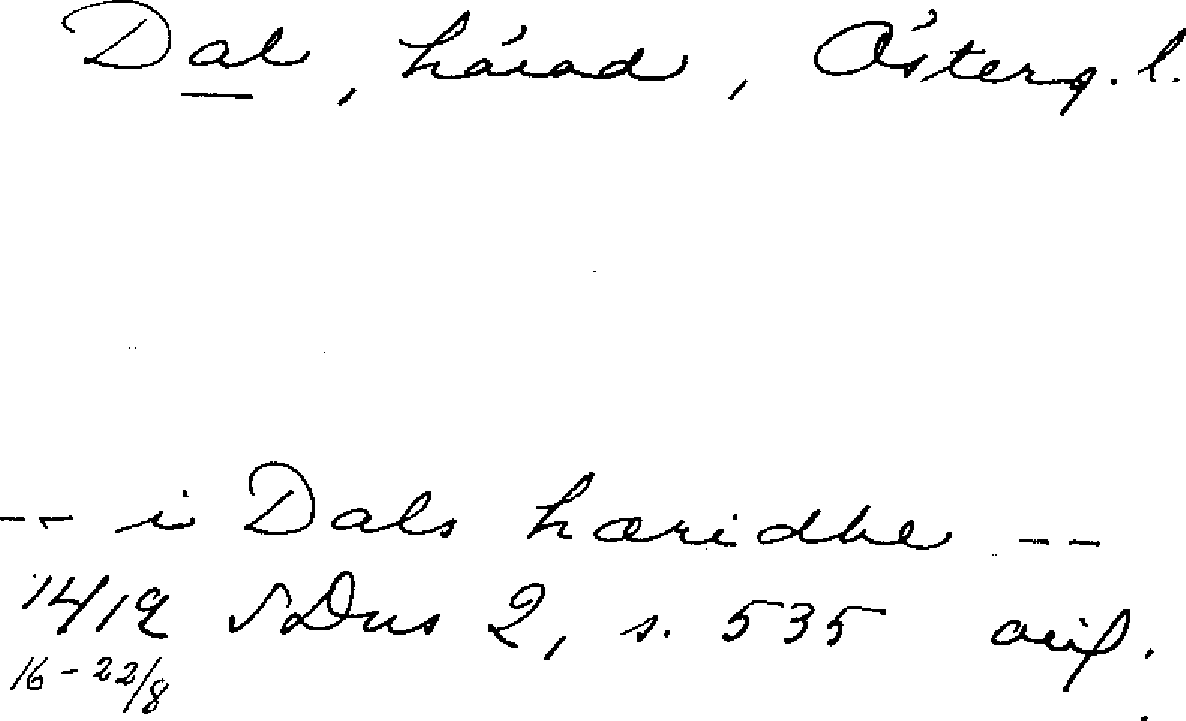 Dal, härad, Österg. l.
-- i Dals hæridhe --
1412 SDns 2, s. 535 avs.
16-22/8